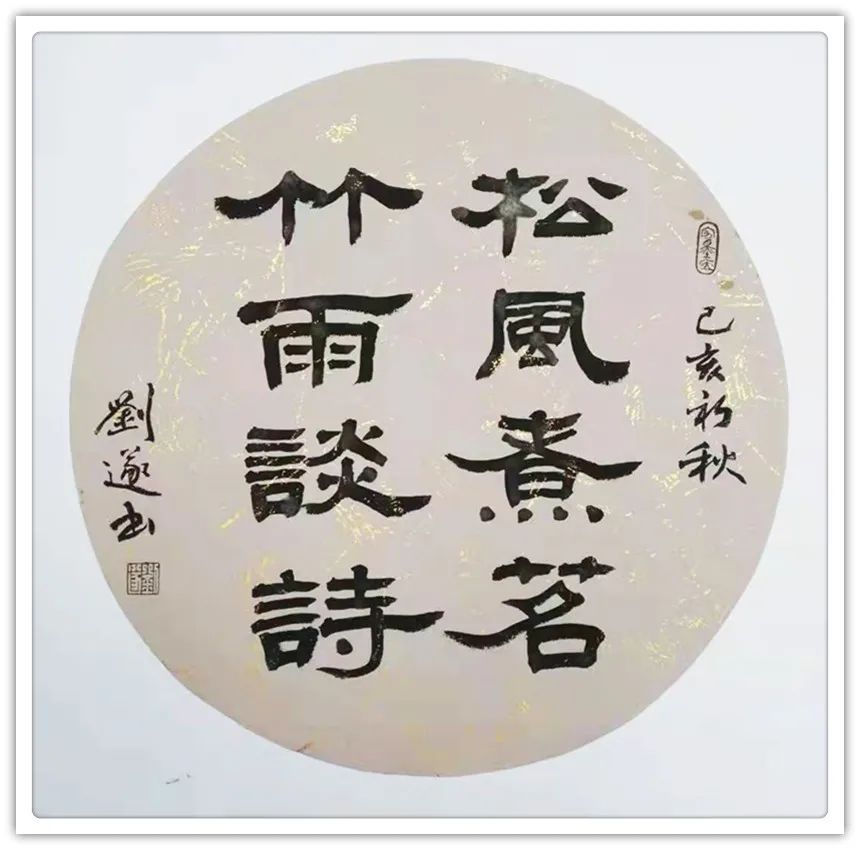 己亥初秋
松風煮茗
竹雨談詩
劉遂書